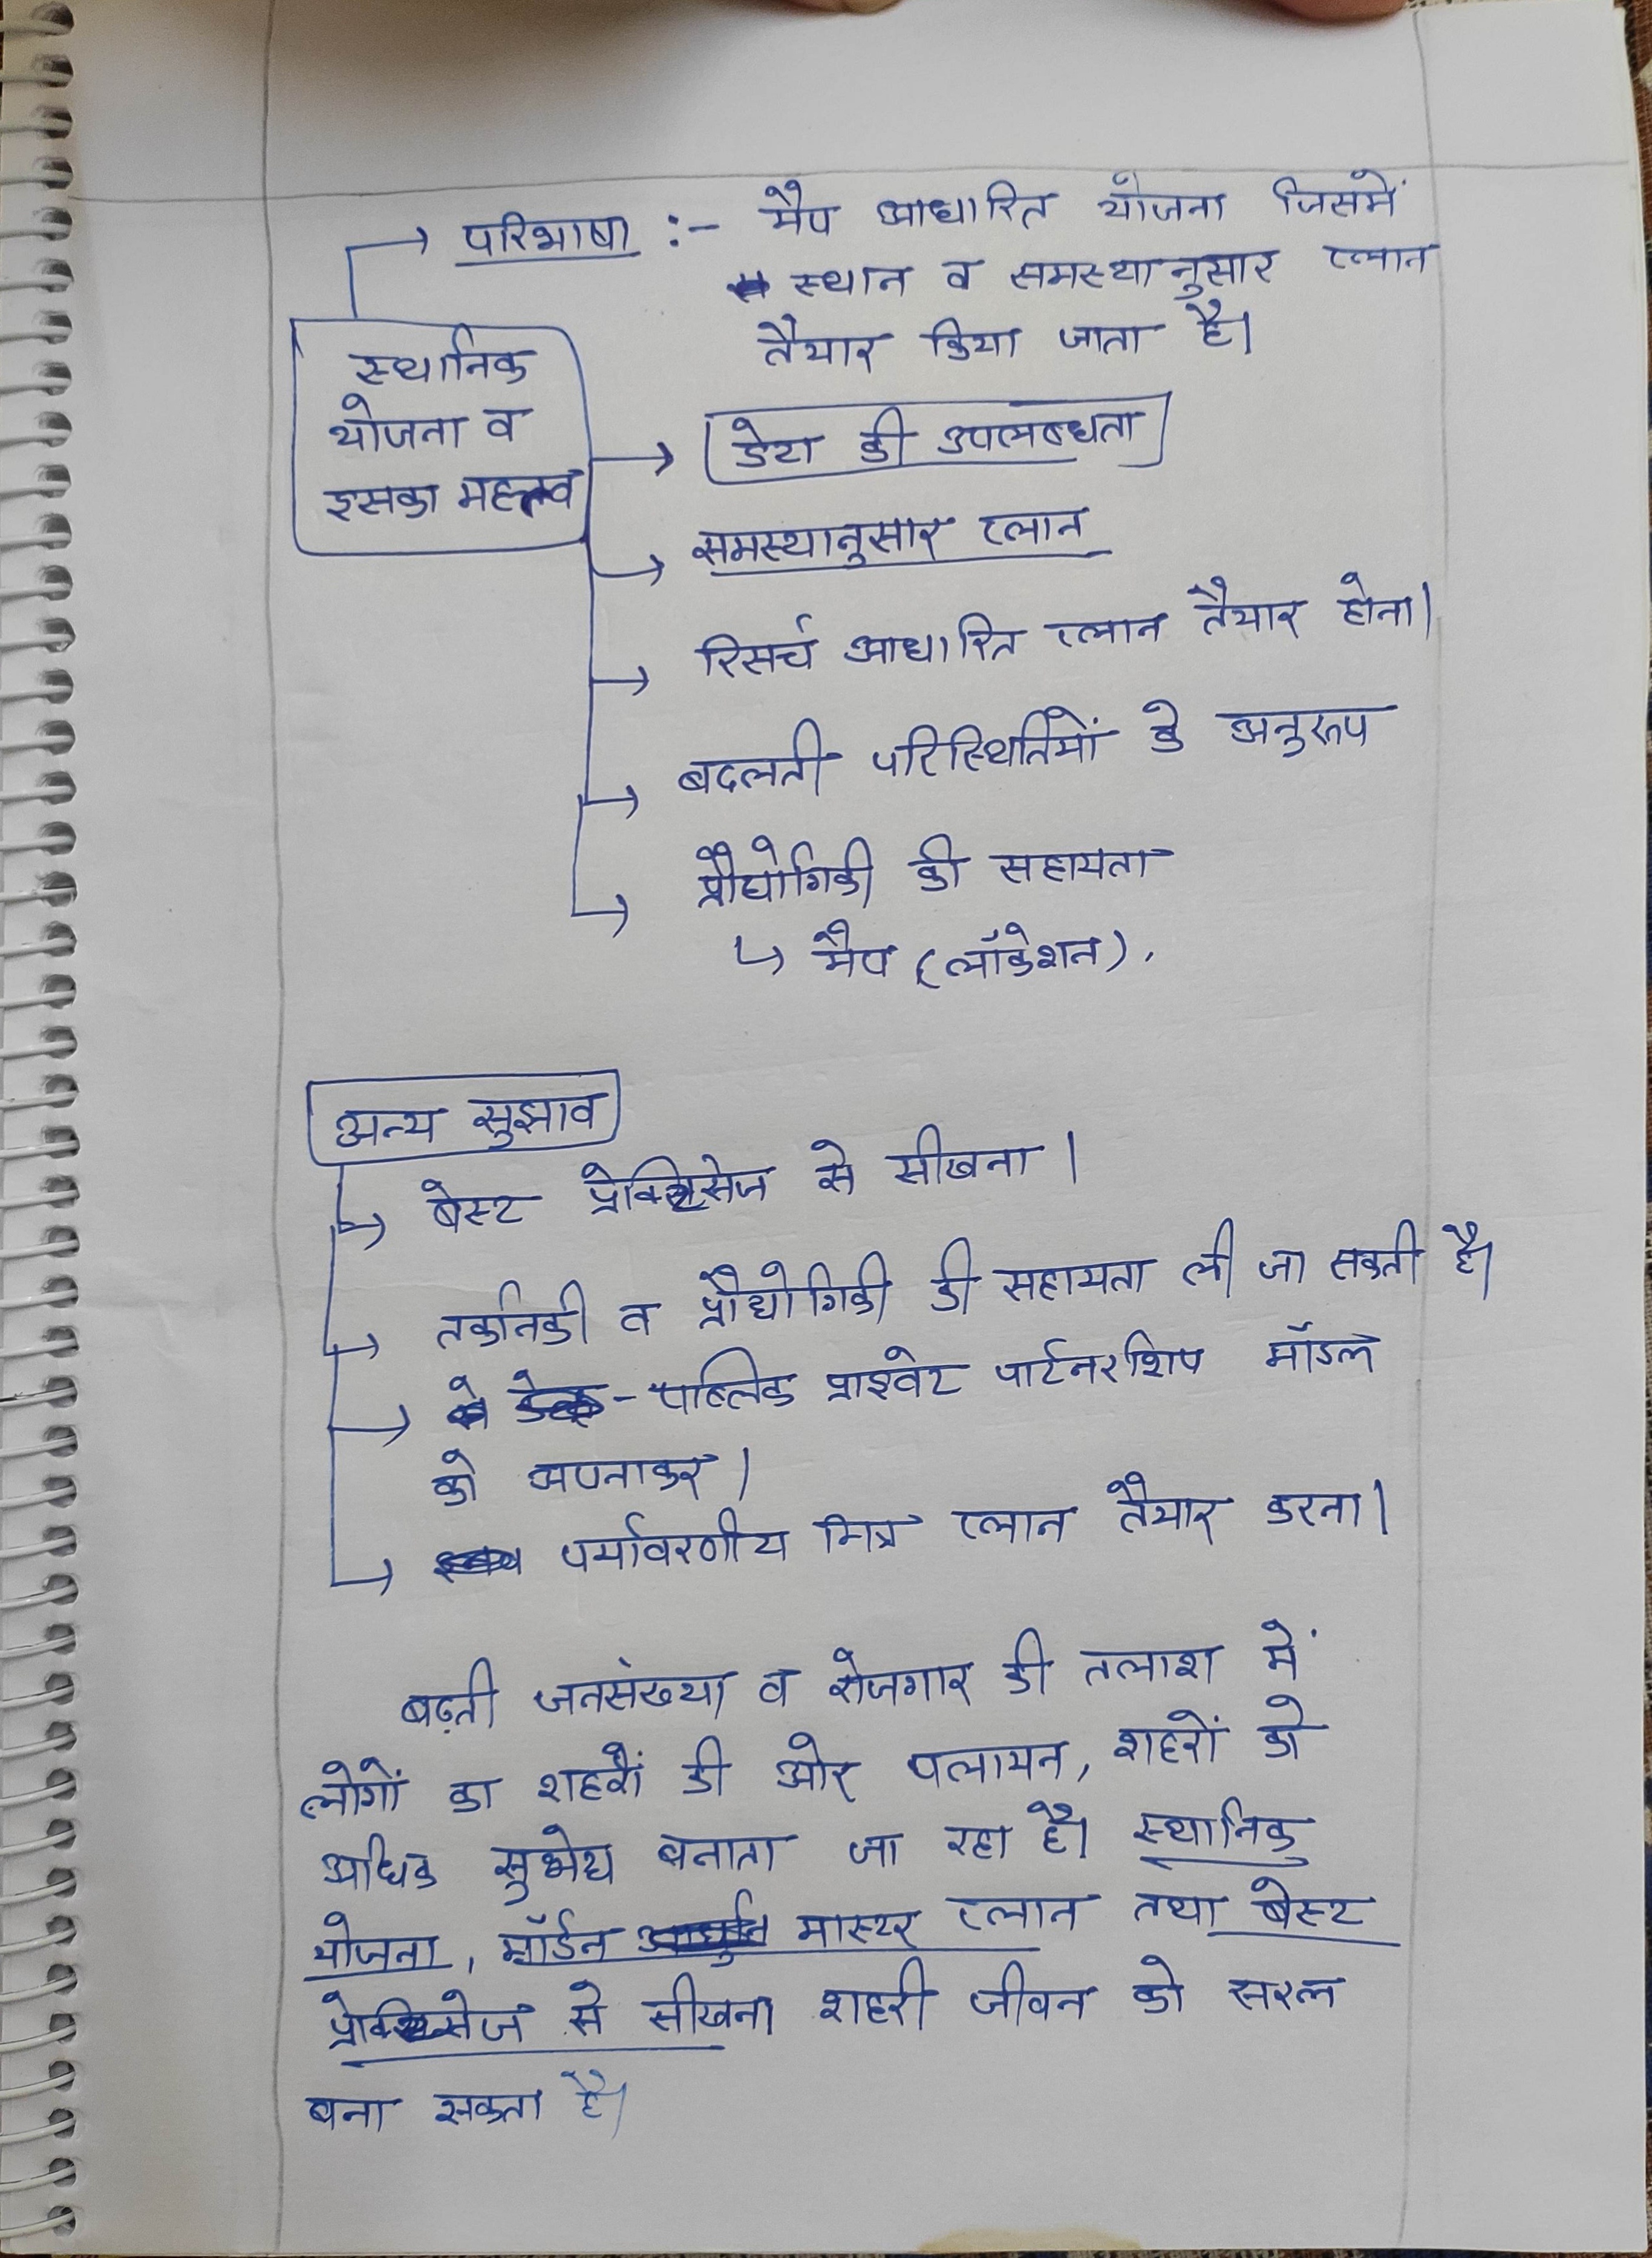 परिभाषा :- मैप आधारित योजना जिसमें
स्थान व समस्यानुसार प्लान
तैयार किया जाता है।
स्थानिक
योजना व
इसका महत्त्व
डेटा की उपलब्धता
समस्यानुसार प्लान
रिसर्च आधारित प्लान तैयार होना।
बदलती परिस्थितियों के अनुरूप
प्रौद्योगिकी की सहायता
मैप (लॉकेशन),
अन्य सुझाव
बेस्ट प्रेक्टिसेज से सीखना।
तकनिकी व प्रौद्योगिकी की सहायता ली जा सकती है।
- पब्लिक प्राइवेट पार्टनरशिप मॉडल
को अपनाकर।
पर्यावरणीय मित्र प्लान तैयार करना।
बढ़ती जनसंख्या व रोजगार की तलाश में
लोगों का शहरों की ओर पलायन, शहरों को
अधिक सुभेद्य बनाता जा रहा है। स्थानिक
योजना, मॉर्डन मास्टर प्लान तथा बेस्ट
प्रेक्टिसेज से सीखना शहरी जीवन को सरल
बना सकता है।